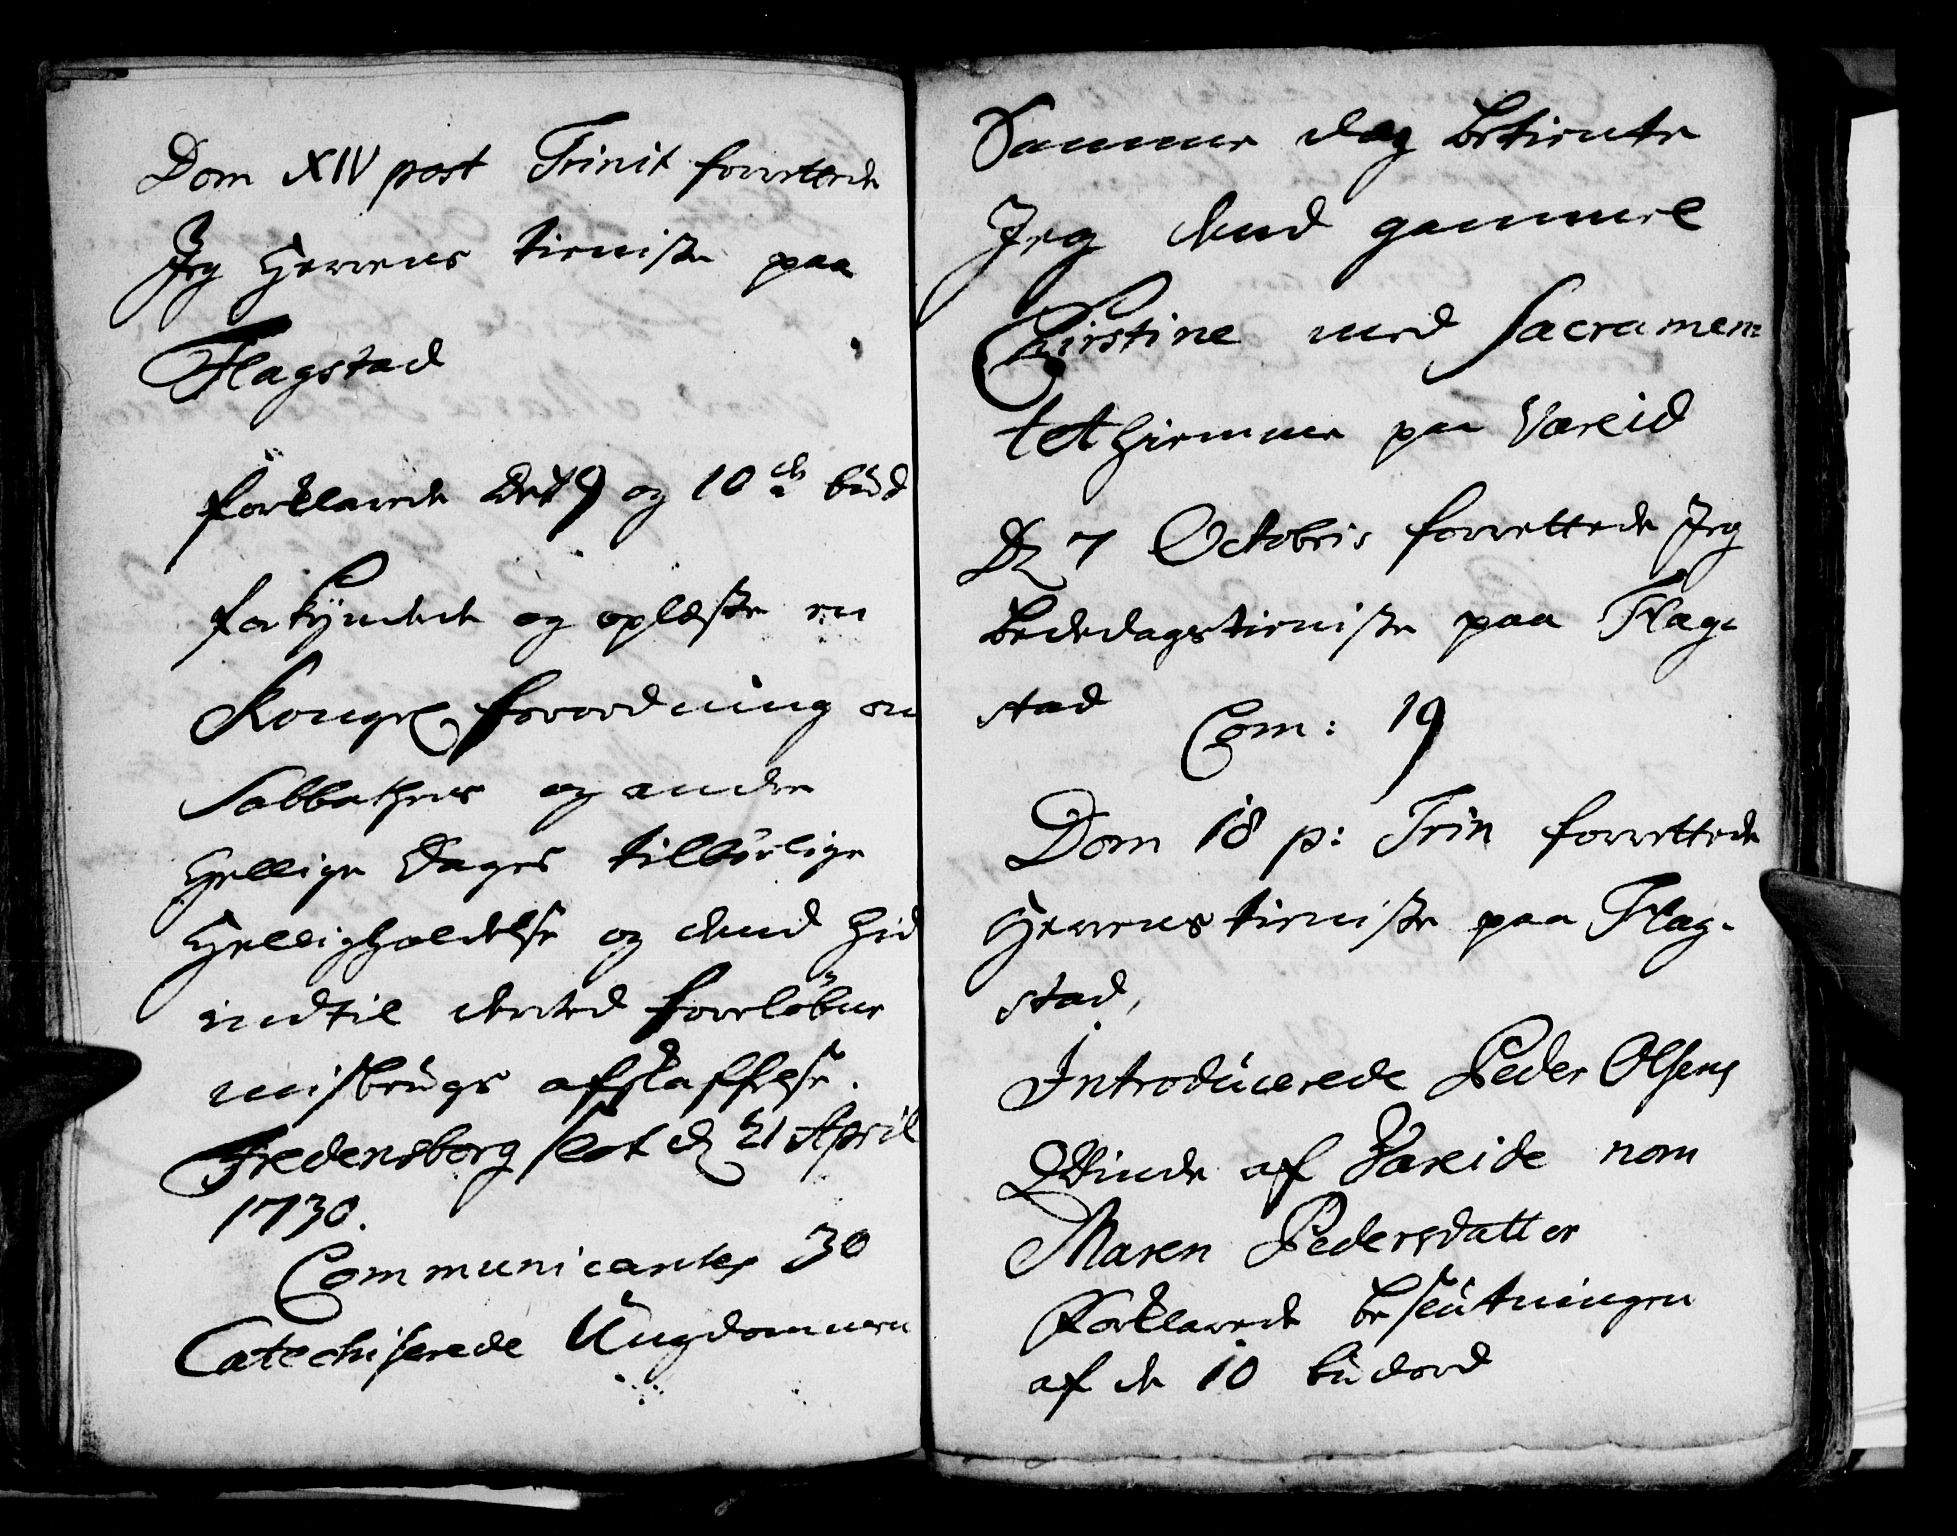 Dom XIV post Trinit forrettede
Jeg Herrens tieniste paa
Flagstad
forklarede Det 9 og 10de bud
forkyndede og oplæste en
Kongel forordning om
Sabbathens og andre
Hellige Dages tilbørlige
Helligholdelse og dend hid
indtil derved forreløbne
misbrugs afskaffelse.
Fredensborg slot d 21 April
1730.
Communicantes 30
Catechiserede Ungdommen
Samme dag betiente
Jeg dend gammel
Chirstine med Sacramen:
tet hiemme paa Vareid
D 7 Octobris forrettede Jeg
Bededagstieniste paa Flag:
stad
Com: 19
Dom 18 p: Trin forrettede
Herrens tieniste paa Flag-
stad,
Introducerede Peder Olsens
Qvinde af Vareide nom
Maren Pedersdatter
Forklarede beslutningen
af de 10 budord